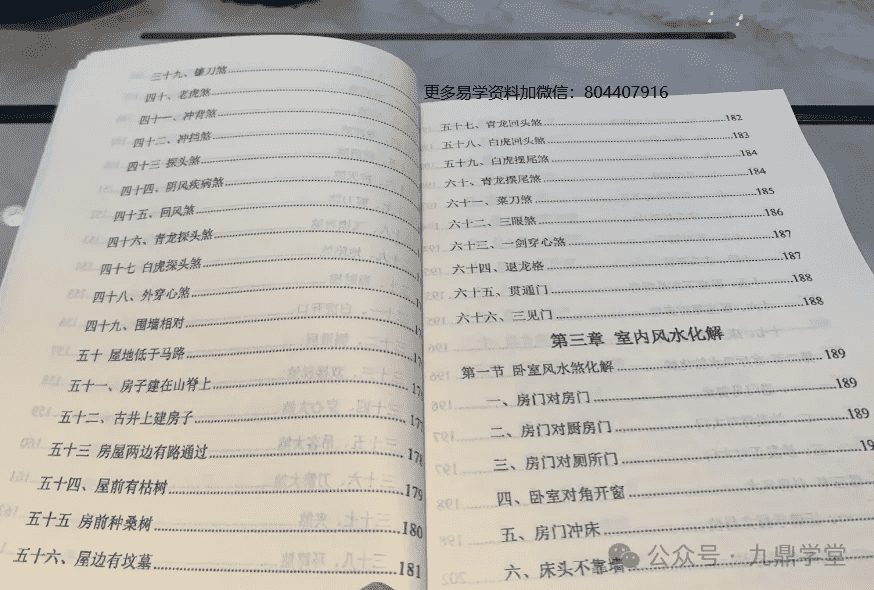 三十九、镰刀煞
四十、老虎煞
四十一、冲背煞
四十二、冲挡煞
四十三 探头煞
四十四、阴风疾病煞
四十五、回风煞
四十六、青龙探头煞
四十七 白虎探头煞
四十八、外穿心煞
四十九、围墙相对
五十 屋地低于马路
五十一、房子建在山脊上
五十二、古井上建房子
五十三 房屋两边有路通过 178
五十四、屋前有枯树 179
五十五 房前种桑树 180
五十六、屋边有坟墓 181
更多易学资料加微信：804407916
五十七、青龙回头煞 182
五十八、白虎回头煞 183
五十九、白虎摆尾煞 184
六十、青龙摆尾煞 184
六十一、菜刀煞 185
六十二、三眼煞 186
六十三、一剑穿心煞 187
六十四、退龙格 187
六十五、贯通门 188
六十六、三见门 188
第三章 室内风水化解
第一节 卧室风水煞化解 189
一、房门对房门 189
二、房门对厨房门 189
三、房门对厕所门
四、卧室对角开窗
五、房门冲床
六、床头不靠墙
公众号·九鼎学堂